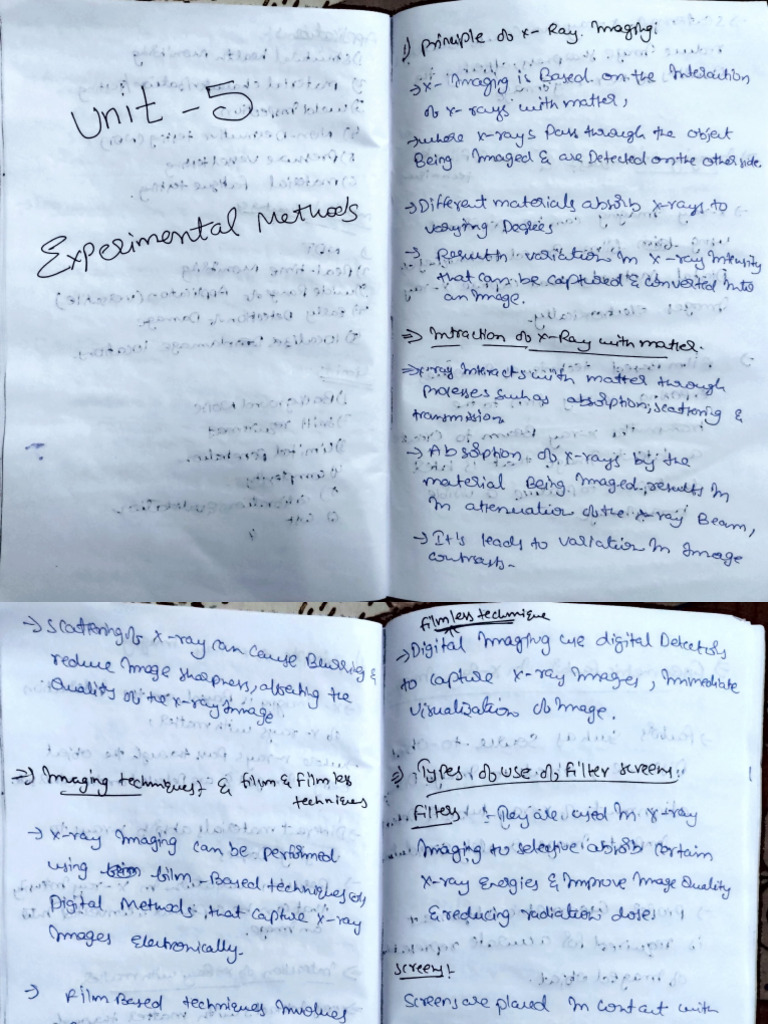 Unit - 5
Experimental Methods
1) Principle of x-Ray. Imaging:
→ x- Imaging is Based on the Interaction
of x-rays with matter,
→ where x-rays Pass through the object
Being Imaged & are Detected on the other side.
→ Different materials absorb x-rays to
varying Degrees
→ Results variation in x-ray Intensity
that can be captured & converted into
an Image.
⇒ Intraction of x-Ray with matter.
→ x-ray Interacts with matter through
processes such as absorption, scattering &
transmission
→ Absorption of x-rays by the
material Being Imaged, results in
in attenuation of the x-ray Beam,
→ It's leads to variation in Image
contrast.
→ Scattering of x-ray can cause Blurring &
reduce Image sharpness, affecting the
Quality of the x-ray Image
⇒ Imaging techniques & film & Film less
techniques
→ x-ray imaging can be performed
using film - Based techniques or
Digital Methods, that capture x-ray
Images electronically.
→ Film Based techniques involves
film less technique
→ Digital Imaging use digital Detectors
to capture x-ray Images, Immediate
visualization of Image.
⇒ Types of use of Filter screens:
Filters :- They are used in x-ray
Imaging to selective absorb certain
x-ray Energies & Improve Image Quality
& reducing radiation doses
Screens!
Screens are placed in contact with